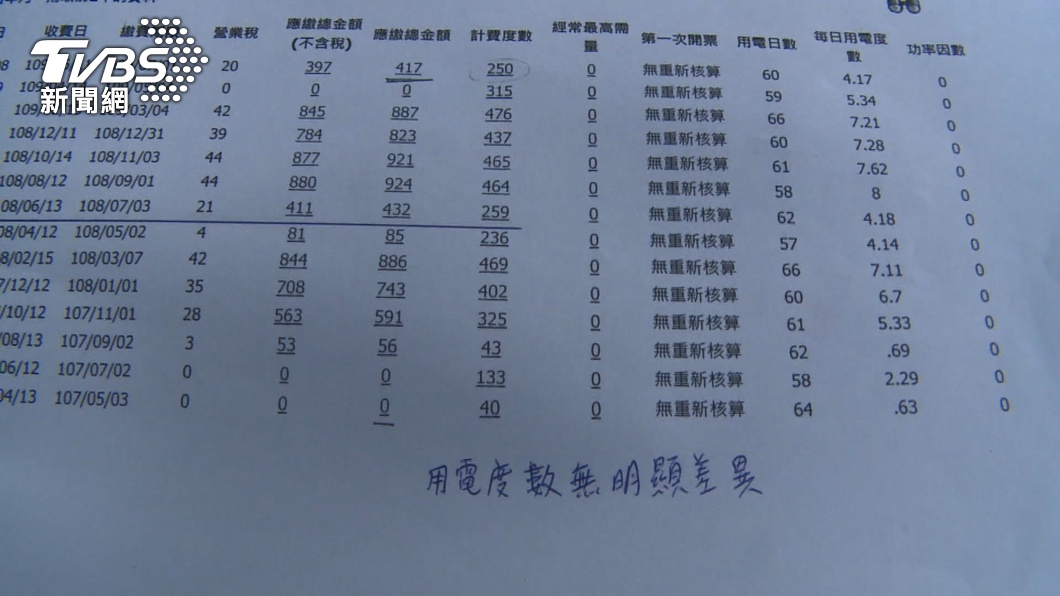 收費日 繳費 營業稅 應繳總金額(不含稅) 應繳總金額 計費度數 經常最高需量 第一次開票 用電日數 每日用電度數 功率因數
TVBS
新聞網
20 397 417 250 0 無重新核算 60 4.17 0
0 0 0 315 0 無重新核算 59 5.34 0
03/04 42 845 887 476 0 無重新核算 66 7.21 0
108/12/11 108/12/31 39 784 823 437 0 無重新核算 60 7.28 0
108/10/14 108/11/03 44 877 921 465 0 無重新核算 61 7.62 0
108/08/12 108/09/01 44 880 924 464 0 無重新核算 58 8 0
08/06/13 108/07/03 21 411 432 259 0 無重新核算 62 4.18 0
08/04/12 108/05/02 4 81 85 236 0 無重新核算 57 4.14 0
8/02/15 108/03/07 42 844 886 469 0 無重新核算 66 7.11 0
7/12/12 108/01/01 35 708 743 402 0 無重新核算 60 6.7 0
/10/12 107/11/01 28 563 591 325 0 無重新核算 61 5.33 0
/08/13 107/09/02 3 53 56 43 0 無重新核算 62 .69 0
06/12 107/07/02 0 0 0 133 0 無重新核算 58 2.29 0
04/13 107/05/03 0 0 0 40 0 無重新核算 64 .63 0
用電度數無明顯差異